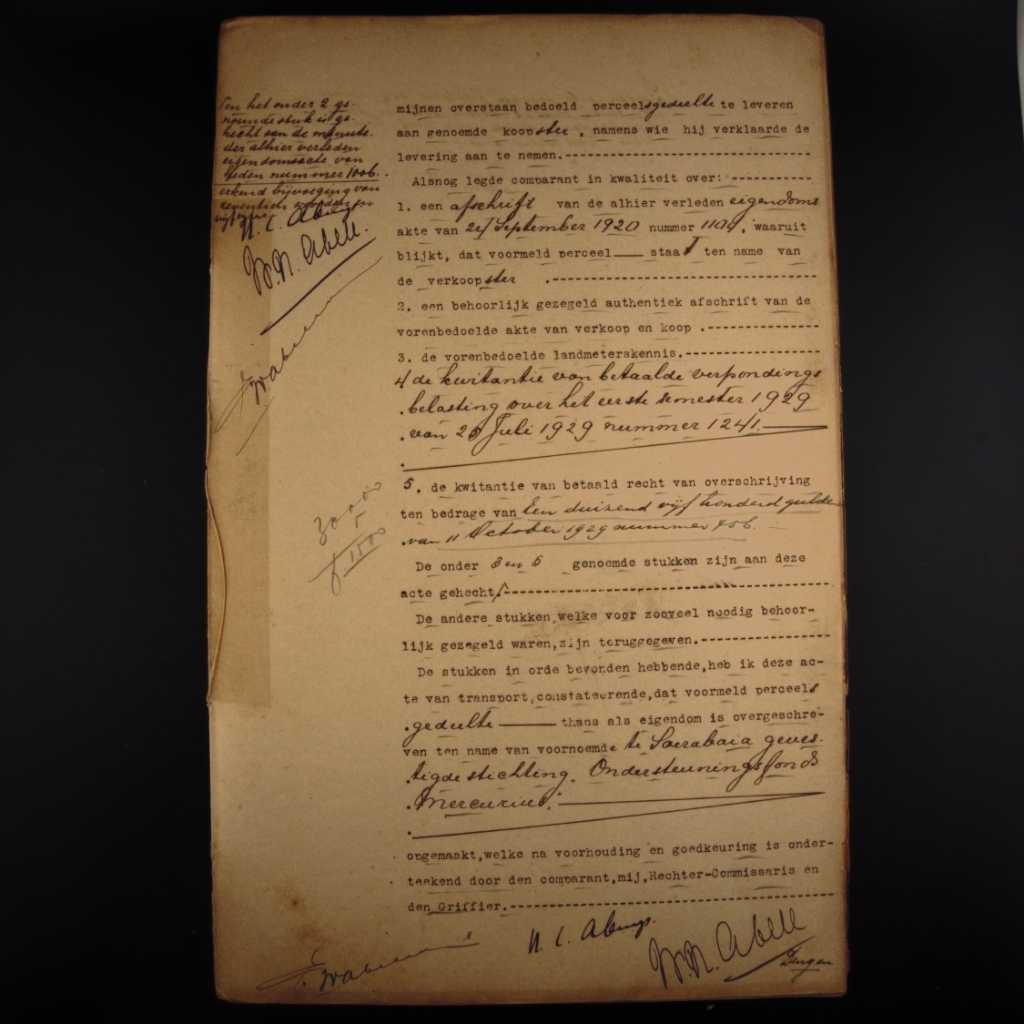 En het onder 2 ge-
noemde stuk is ge-
hecht aan de minute
der alhier verleden
eigendomsacte van
heden nummer 1006.
erkend bijvoeging van
W.N. Abell.
mijnen overstaan bedoeld perceelsgedeelte te leveren
aan genoemde koopster, namens wie hij verklaarde de
levering aan te nemen.
Alsnog legde comparant in kwaliteit over:
1. een afschrift van de alhier verleden eigendoms
akte van September 1920 nummer, waaruit
blijkt, dat voormeld perceel staat ten name van
de verkoopster.
2. een behoorlijk gezegeld authentiek afschrift van de
vorenbedoelde akte van verkoop en koop.
3. de vorenbedoelde landmeterskennis.
4 de kwitantie van betaalde verpondings
belasting over het eerste semester 1929
van Juli 1929 nummer 1241.
5. de kwitantie van betaald recht van overschrijving
ten bedrage van Een duizend vijf honderd gulden
van 11 October 1929 nummer
De onder 3 en 5 genoemde stukken zijn aan deze
acte gehecht
De andere stukken, welke voor zooveel noodig behoor-
lijk gezegeld waren, zijn teruggegeven.
De stukken in orde bevonden hebbende, heb ik deze ac-
te van transport, constateerende, dat voormeld perceels
gedeelte thans als eigendom is overgeschre-
ven ten name van voornoemde te Soerabaia geves-
tigde stichting. Ondersteuningsfonds
Mercurius.
opgemaakt, welke na voorhouding en goedkeuring is onder-
teekend door den comparant, mij, Rechter-Commissaris en
den Griffier.
W.N. Abell